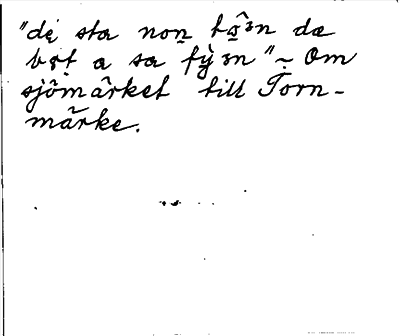 "dẹ sta non̲ tɑ̤̂ɜn dæ
bɘt a sa fỳɜn" ~ Om
sjömärket till Torn-
märke.